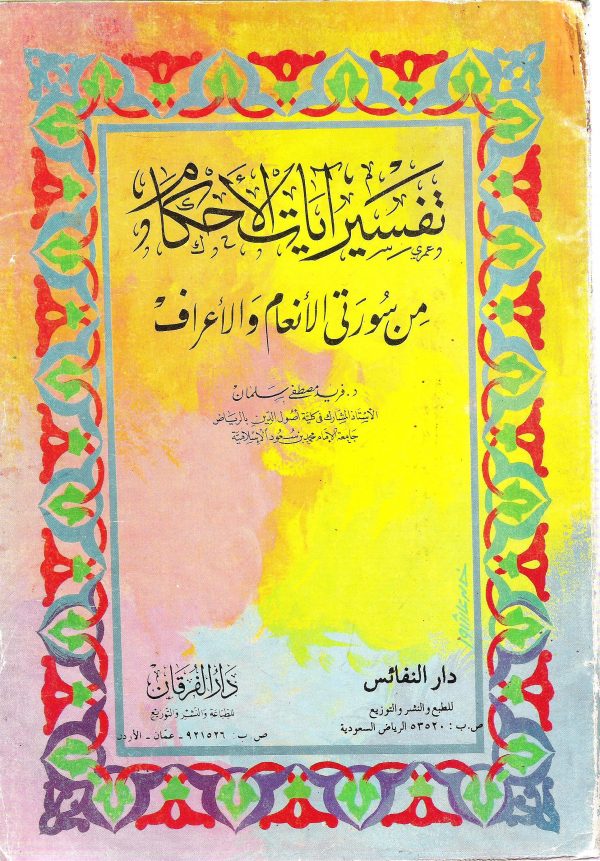 تفسير آيات الأحكام
من سورتي الأنعام والأعراف
د. فريد مصطفى سلمان
الأستاذ المشارك في كلية أصول الدين بالرياض
جامعة الإمام محمد بن سعود الإسلامية
دار النفائس
للطبع والنشر والتوزيع
ص.ب : ٥٣٥٢٠ الرياض السعودية
دار الفرقان
للطباعة والنشر والتوزيع
ص ب : ٩٢١٥٢٦ - عمان - الأردن